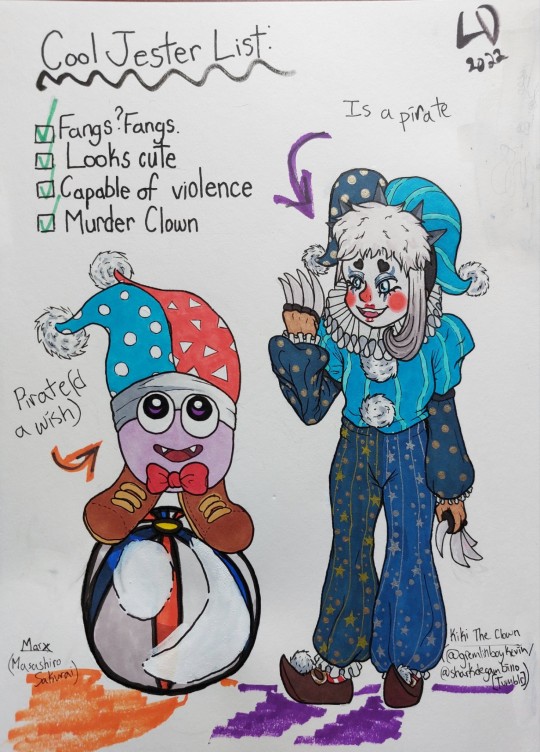 Cool Jester List:
LD
2022
Fangs? Fangs.
Looks cute
Capable of violence
Murder Clown
Is a pirate
Pirate(d
a wish)
Marx
(Masashiro
Sakurai)
Kiki The Clown
(@gremlinboykevin/
@sharkdegambino
[Tumblr]